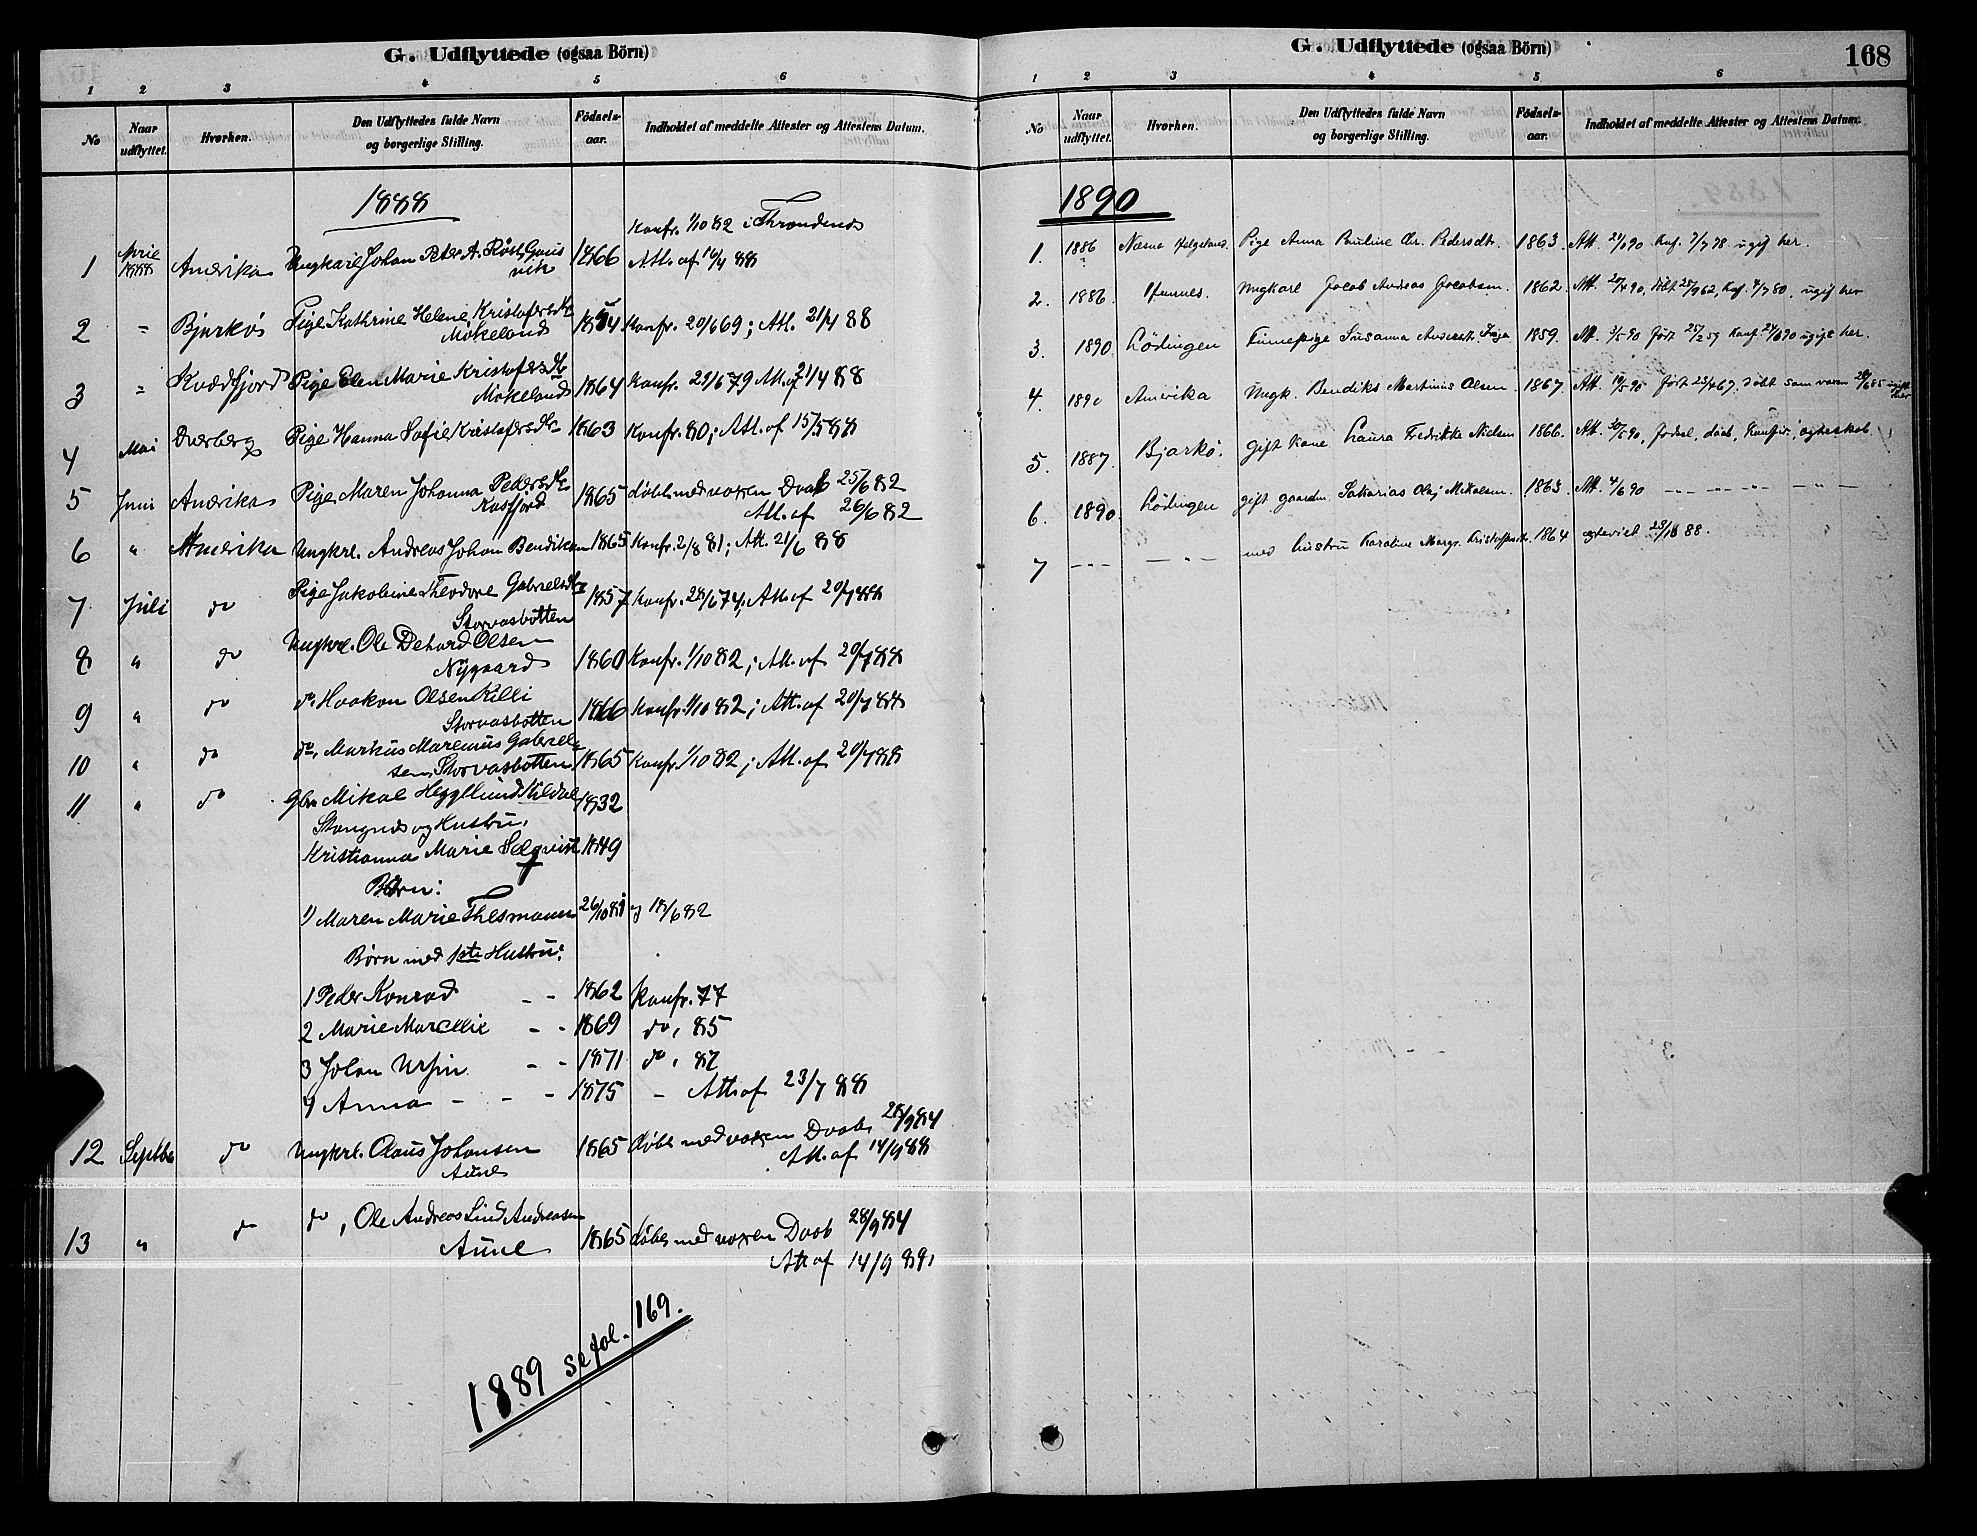 G. Udflyttede (ogsaa Börn)
1 2 3 4 5 6
No Naar udflyttet. Hvorhen. Den Udflyttedes fulde Navn og borgerlige Stilling. Födsels-aar. Indholdet af meddelte Attester og Attestens Datum.
1888
Konfr. 1/10 82 i Throndenes
1 April 1888 Amerika Ungkarl Johan Peter A. Gausvik 1866 Att. af 16/4 88
2 " Bjarkøs Pige Kathrine Helene Kristofersdtr
Møkeland 1854 Konfr. 20/6 69; Att. 21/4 88
3 " Kvædfjord Pige Elen Marie Kristofersdtr
Møkeland 1864 Konfr. 29/6 79 Att. af 21/4 88
4 Mai Dverberg Pige Hanna Sofie Kristofersdtr 1863 Konfr. 80; Att. af 15/5 88
5 Juni Amerika Pige Maren Johanna Pedersdtr
Kasfjord 1865 döbt med voxen Daab 25/6 82
Att. af 26/6 82
6 " Amerika Ungkrl. Andreas Johan Bendiksen 1865 Konfr. 2/8 81; Att. 21/6 88
7 Juli do Pige Jakobine Theodore Gabrielsdtr
Storvasbotten 1857 Konfr. 28/6 74, Att. af 20/7 88
8 " do Ungkrl. Ole Dehard Olsen
Nygaard 1860 Konfr. 1/10 82; Att. af 20/7 88
9 " do do. Haakon Olsen Killi
Storvasbotten 1866 Konfr. 1/10 82; Att. af 20/7 88
10 " do do. Markus Maremus Gabriel-
sen, Storvasbotten 1865 Konfr. 1/10 82; Att. af 20/7 88
11 " do Gbr. Mikal Hegglund Kildal 1832
Stangnes og Hustru,
Kristianna Marie Selqvist 1849
Børn:
1) Maren Marie Thesmann 26/10 81 18/6 82
Børn med 1ste Hustru:
1 Peder Konrad - - 1862 Konfr. 77
2 Marie Marellie - - 1869 do, 85
3 Johan Ursin - - 1871 do, 87
4 Anna - - - 1875 - Att. af 23/7 88
12 Septbr do Ungkrl. Olaus Johansen
Aune 1865 döbt med voxen Daab 28/9 84
Att. af 14/9 88
13 " do do, Ole Andreas Lind Andreasen
Aune 1865 döbt med voxen Daab 28/9 84
Att af 14/9 88,
1889 se fol. 169.
G. Udflyttede (ogsaa Börn)
168
1 2 3 4 5 6
No Naar udflyttet. Hvorhen. Den Udflyttedes fulde Navn og borgerlige Stilling. Födsels-aar. Indholdet af meddelte Attester og Attestens Datum.
1890
1. 1886 Næsne Helgeland. Pige Anna Pauline Pedersdtr. 1863. Att. 21/1 90 Kof. 7/7 78 ugif her.
2. 1886. Ungkarl Jacob Andreas Jacobsen. 1862. Att. 20/4 90, Döbt 28/9 62, Kof. 4/7 80, ugif her
3. 1890. Lödingen Finnepige Susanna 1859. Att. 3/5 90 Födt 25/2 59 Konf. 24/6 90 ugift her.
4. 1890 Amerika Ungk. Bendiks Martinus Olsen 1867. Att. 19/5 90 Födt 23/4 67. Döbt som voxen 28/6 85 ugift her
5. 1887. Bjarkø. gift Kone Laura Fredrikke Nielsen 1866. Att. 30/5 90, fødsel, daab, Konfir., ægteskab.
6. 1890. Lödingen gift gaardm. Sakarias Olaj Mikalsen. 1863. Att. 4/6 90 -"- -"- -"- -"-
7 -"- -"- med hustru Karoline Margr. Kristoffersdtr. 1864 ægteviet 23/10 88.